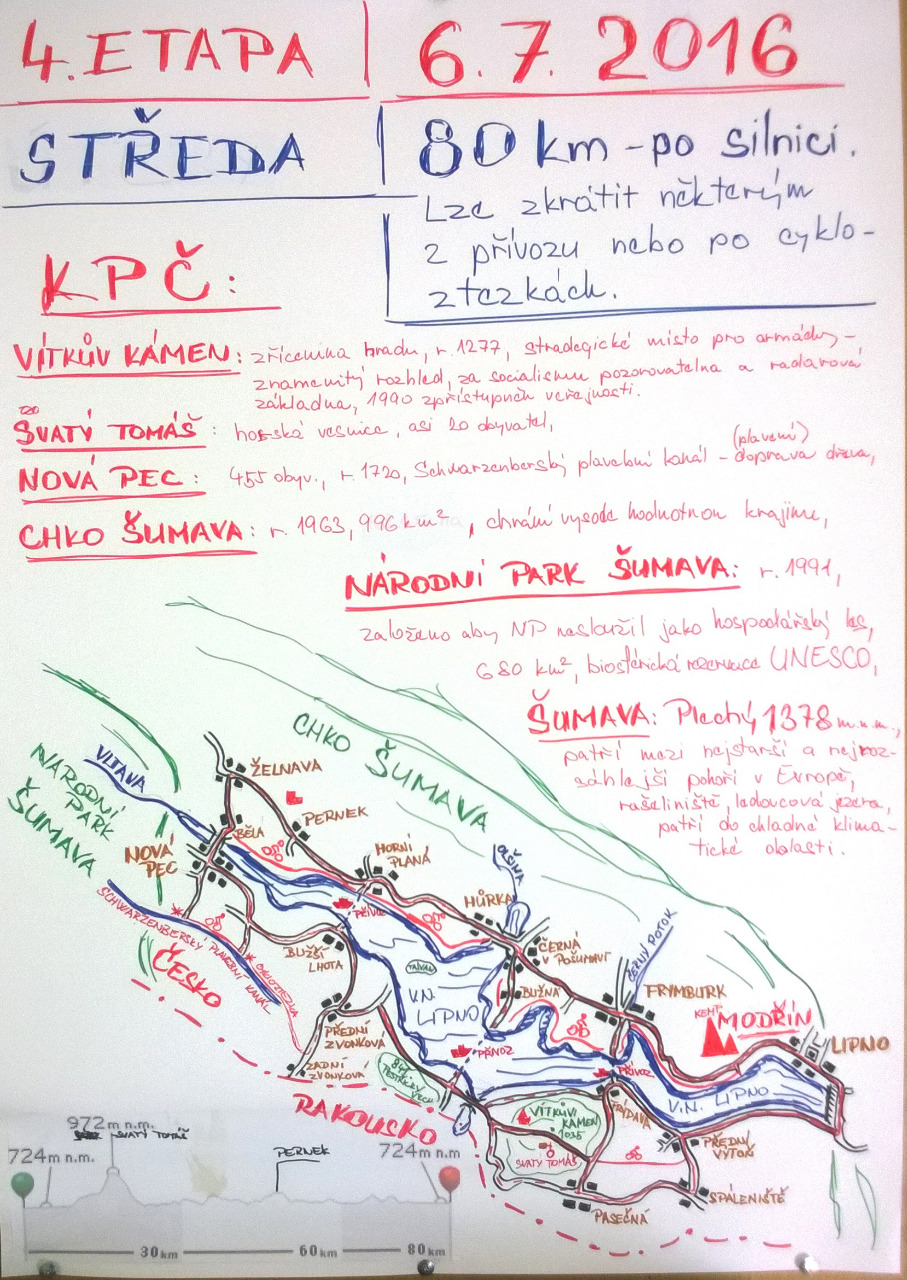 4. ETAPA
6. 7. 2016
STŘEDA
80 km - po silnici.
Lze zkrátit některým
z přívozu nebo po cyklo-
ztezkách.
KPČ:
VÍTKŮV KÁMEN: zřícenina hradu, r. 1277, stradegické místo pro armády -
znamenitý rozhled, za socialismu pozorovatelna a radarová
základna, 1990 zpřístupněn veřejnosti.
SVATÝ TOMÁŠ: horská vesnice, asi 20 obyvatel,
(plavení)
NOVÁ PEC: 455 obyv., r. 1720, Schwarzenberský plavební kanál - doprava dřeva,
CHKO ŠUMAVA: r. 1963, 996 km², chrání vysoce hodnotnou krajinu,
NÁRODNÍ PARK ŠUMAVA: r. 1991,
založeno aby NP nesloužil jako hospodářský les,
680 km², biosférická rezervace UNESCO,
ŠUMAVA: Plechý 1378 m.n.m.,
patří mezi nejstarší a nejroz-
sáhlejší pohoří v Evropě,
rašeliniště, ledovcová jezera,
patří do chladné klima-
tické oblasti.
CHKO ŠUMAVA
NÁRODNÍ
PARK
ŠUMAVA
VLTAVA
ŽELNAVA
PERNEK
BĚLÁ
NOVÁ
PEC
HORNÍ
PLANÁ
OLŠINA
HŮRKA
PŘÍVOZ
SCHWARZENBERSKÝ PLAVEBNÍ KANÁL
ČESKO
BLIŽŠÍ
LHOTA
ČERNÁ
V POŠUMAVÍ
ČERNÝ POTOK
TAJVAN
V.N.
LIPNO
BLIŽNÁ
FRYMBURK
KEMP
MODŘÍN
LIPNO
PŘEDNÍ
ZVONKOVÁ
ZADNÍ
ZVONKOVÁ
PŘÍVOZ
PŘÍVOZ
V.N. LIPNO
RAKOUSKO
VÍTKŮV
KÁMEN
1035
FRÝDAVA
PŘEDNÍ
VÝTOŇ
SVATÝ TOMÁŠ
SPÁLENIŠTĚ
PASEČNÁ
972m n.m.
SVATÝ TOMÁŠ
724m n.m.
PERNEK
724m n.m
30 km
60 km
80 km